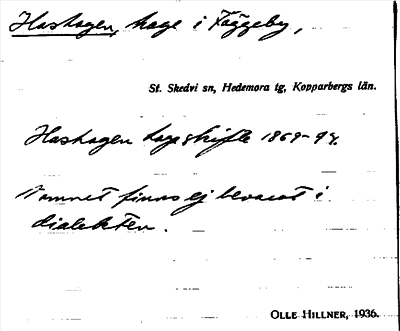 Hashagen, hage i Fäggeby,
St. Skedvi sn, Hedemora tg, Kopparbergs län.
Hashagen lagaskifte 1869-94.
Namnet finns ej bevarat i
dialekten.
OLLE HILLNER, 1936.